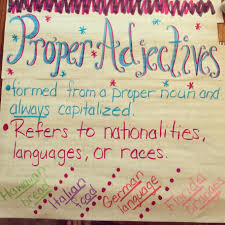 Proper Adjectives
• formed from a proper noun and
always capitalized.
• Refers to nationalities,
languages, or races.
Hawaiian
Italian
food
German
language